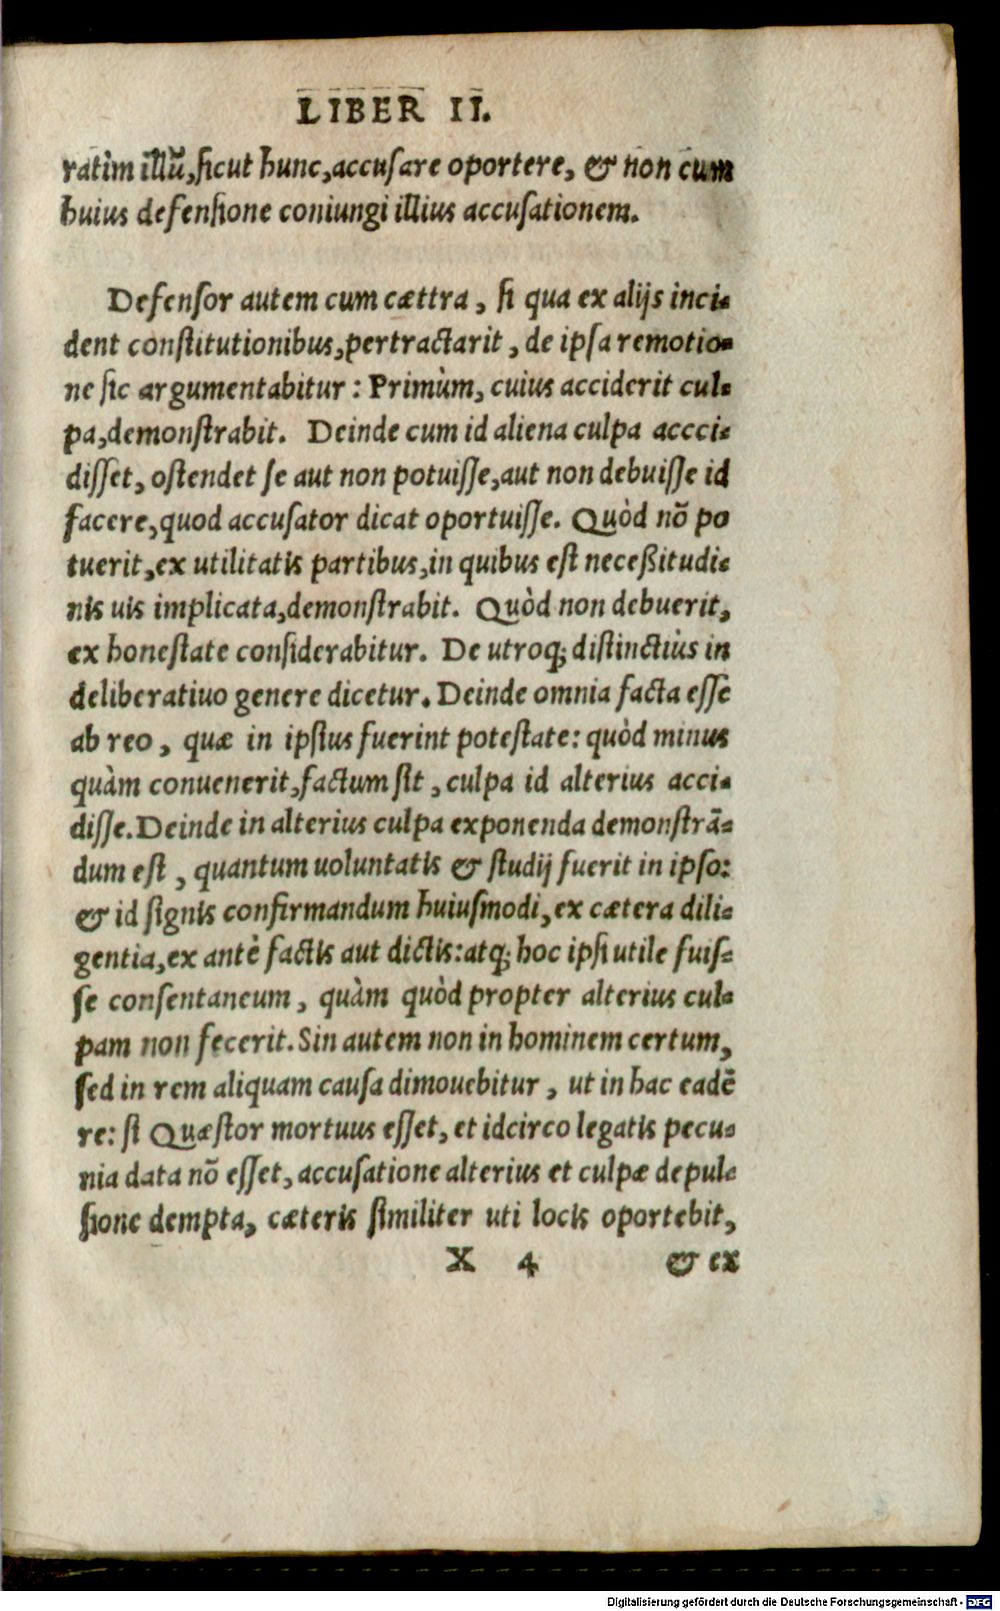 LIBER II.
ratìm illũ, sicut hunc, accusare oportere, & non cum
huius defensione coniungi illius accusationem.
Defensor autem cum cættra, si qua ex alijs inci-
dent constitutionibus, pertractarit, de ipsa remotio-
ne sic argumentabitur: Primùm, cuius acciderit cul-
pa, demonstrabit. Deinde cum id aliena culpa accci-
disset, ostendet se aut non potuisse, aut non debuisse id
facere, quod accusator dicat oportuisse. Quòd nõ po
tuerit, ex utilitatis partibus, in quibus est neceßitudi-
nis uis implicata, demonstrabit. Quòd non debuerit,
ex honestate considerabitur. De utroq; distinctiùs in
deliberatiuo genere dicetur. Deinde omnia facta esse
ab reo, quæ in ipsius fuerint potestate: quòd minus
quàm conuenerit, factum sit, culpa id alterius acci-
disse. Deinde in alterius culpa exponenda demonstrã-
dum est, quantum uoluntatis & studij fuerit in ipso:
& id signis confirmandum huiusmodi, ex cætera dili-
gentia, ex antè factis aut dictis: atq; hoc ipsi utile fuis-
se consentaneum, quàm quòd propter alterius cul-
pam non fecerit. Sin autem non in hominem certum,
sed in rem aliquam causa dimouebitur, ut in hac eadẽ
re: si Quæstor mortuus esset, et idcirco legatis pecu-
nia data nõ esset, accusatione alterius et culpæ depul-
sione dempta, cæteris similiter uti locis oportebit,
X 4 & ex
Digitalisierung gefördert durch die Deutsche Forschungsgemeinschaft - DFG